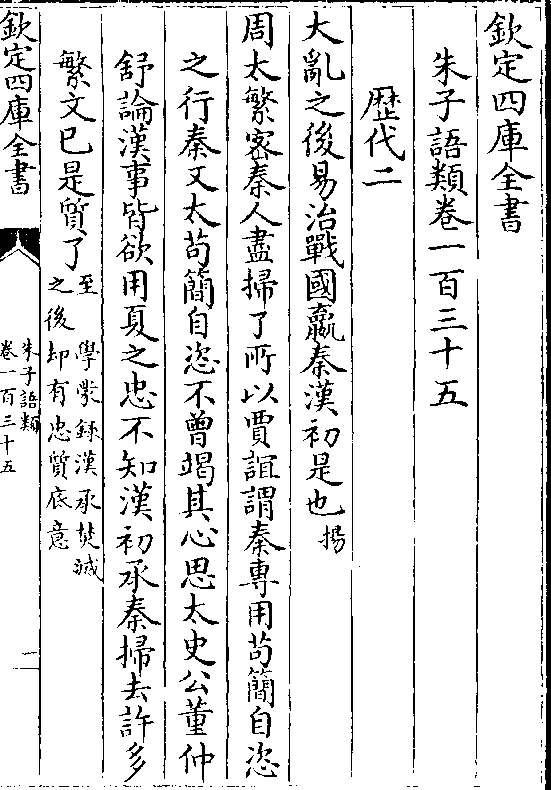 欽定四庫全書
朱子語類卷一百三十五
歷代二
大亂之後易治戰國嬴秦漢初是也揚
周太繁密秦人盡掃了所以賈誼謂秦專用苟簡自恣
之行秦又太苟簡自恣不曾竭其心思太史公董仲
舒論漢事皆欲用夏之忠不知漢初承秦掃去許多
繁文已是質了至
學蒙錄漢承焚滅
之後却有忠質底意
欽定四庫全書
朱子語類
卷一百三十五
一